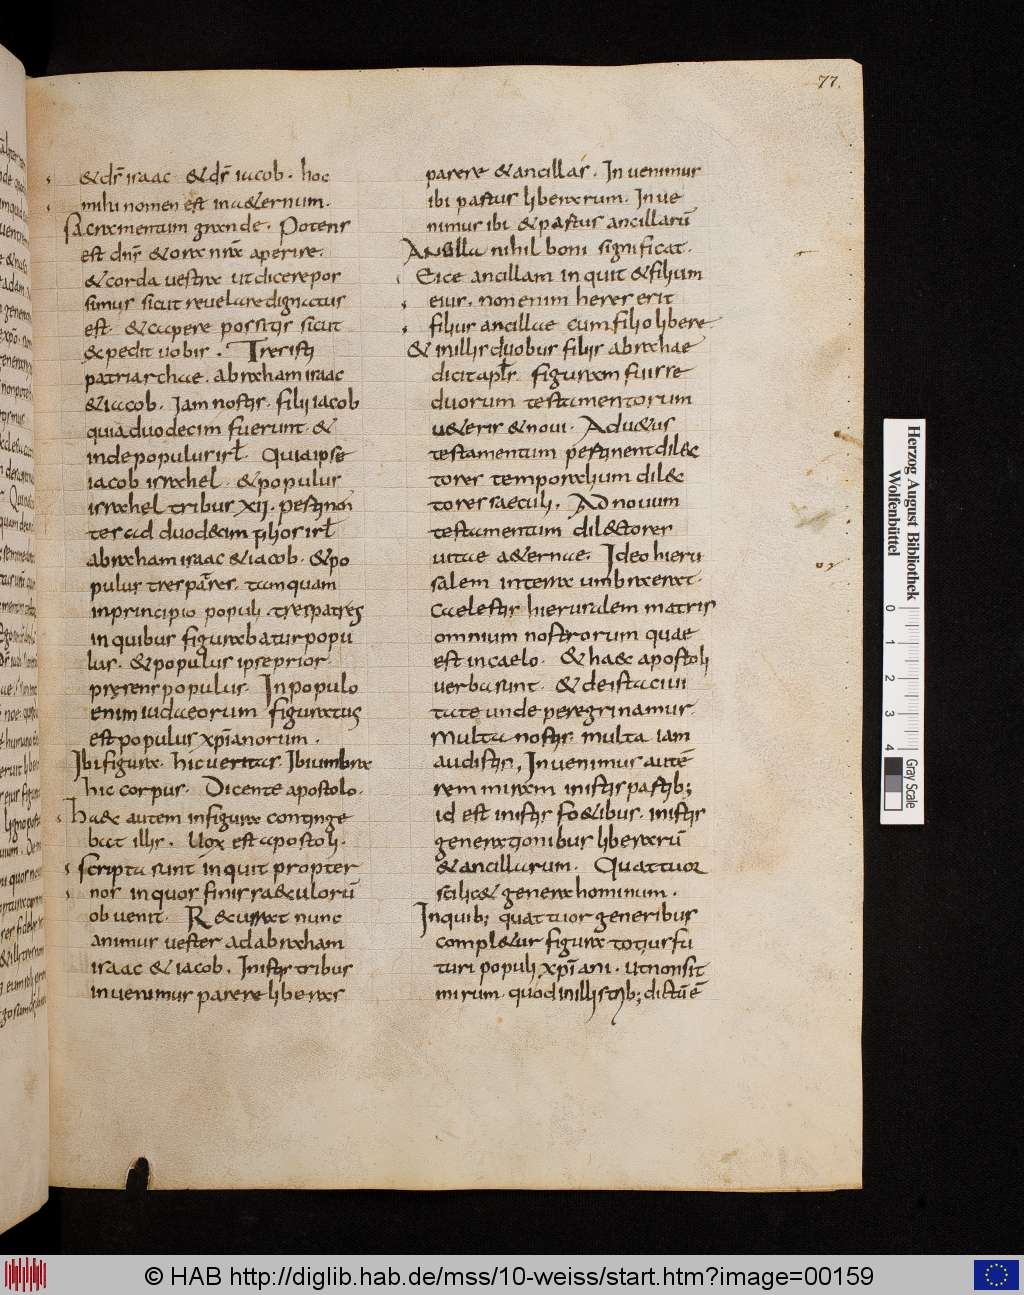 77.
& dš isaac & dš iacob . hoc
mihi nomen est in a&ernum .
Sacramentum grande . Potens
est dns̄ & ora nr̄a aperire .
& corda uestra ut dicere pos
simus sicut reuelare dignatus
est . & capere possitis sicut
expedit uobis . Tres isti
patriarchae . abraham isaac
& iacob . Iam nostis . filii iacob
quia duodecim fuerunt . &
inde populus isrł . Quia ipse
iacob israhel . & populus
israhel tribus XII . pertinen
tes ad duodecim
abraham isaac & iacob . & po
pulus tres patres . tamquam
in principio populi . tres patres
in quibus figurabatur popu
lus . & populus ipse prior
presens populus . In populo
enim iudaeorum figuratus
est populus xp̄ianorum .
Ibi figura . hic ueritas . Ibi umbra
hic corpus . Dicente apostolo .
Haec autem in figura continge
bant illis . Uox est apostoli .
scripta sunt inquit propter
nos in quos finis saeculorū
obuenit . Recurrat nunc
animus uester ad abraham
isaac & iacob . In istis tribus
inuenimus parere liberas
parere & ancillas . Inuenimus
ibi partus liberarum . Inue
nimus ibi & partus ancillarū
Ancilla nihil boni significat .
Eice ancillam inquit & filium
eius . non enim heres erit
filius ancillae cum filio libere
& in illis duobus filiis abrahae
dicit apłs . figuram fuisse
duorum testamentorum
u&eris & noui . Ad u&us
testamentum pertinent dilec
tores temporalium dilec
tores saeculi . Ad nouum
testamentum dilectores
uitae a&ernae . Ideo hieru
salem in terra umbra erat .
Caelestis hierusalem matris
omnium nostrorum quae
est in caelo . & haec apostoli
uerba sunt . & de ista ciui
tate unde peregrinamur .
Multa nostis . multa iam
audistis . Inuenimus autē
rem miram in istis partib;
id est in istis fo&ibus . in istis
generationibus liberarū
& ancillarum . Quattuor
scilic& genera hominum .
In quib; quattuor generibus
compl&ur figura totius fu
turi populi xp̄iani . Ut non sit
mirum . quod in illis trib; dictū ē
Herzog August Bibliothek
Wolfenbüttel
0 1 2 3 4
Gray Scale
© HAB http://diglib.hab.de/mss/10-weiss/start.htm?image=00159